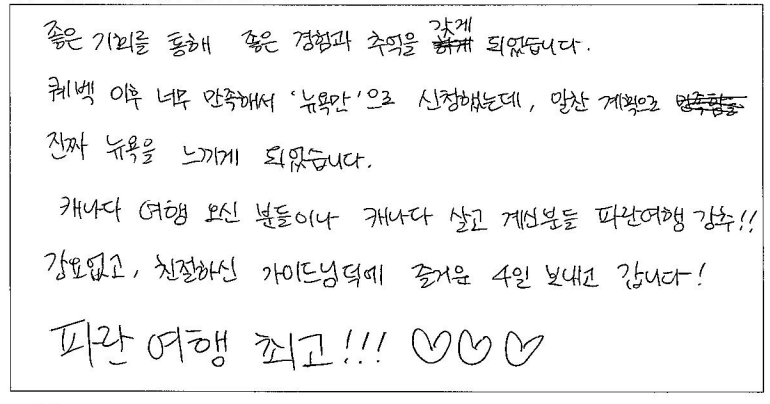 좋은 기회를 통해 좋은 경험과 추억을 갖게 되었습니다.
퀘벡 이후 너무 만족해서 '뉴욕만'으로 신청했는데, 알찬 계획으로
진짜 뉴욕을 느끼게 되었습니다.
캐나다 여행 오신 분들이나 캐나다 살고 계신분들 파란여행 강추!!
강요없고, 친절하신 가이드님덕에 즐거운 4일 보내고 갑니다!
파란여행 최고!!! ♡♡♡